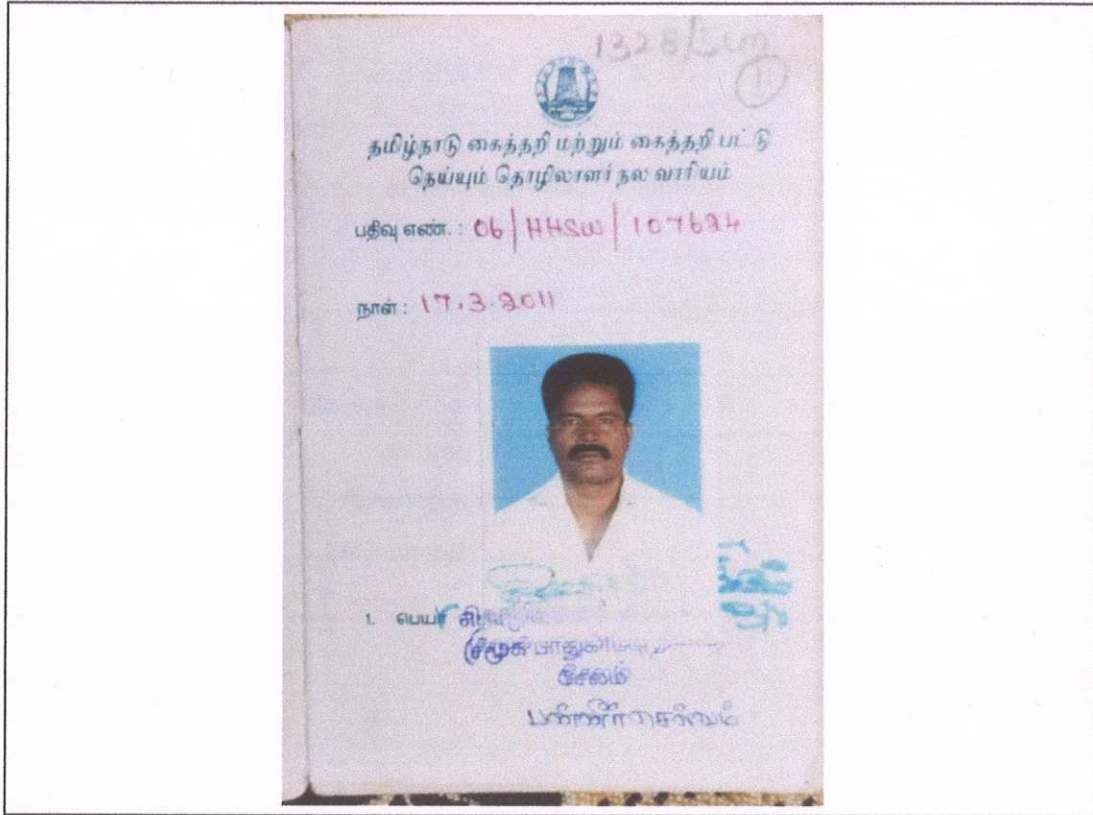 தமிழ்நாடு கைத்தறி மற்றும் கைத்தறி பட்டு
நெய்யும் தொழிலாளர் நல வாரியம்
பதிவு எண். : 06/HHSW/107624
நாள் : 17.3.2011
1. பெயர்
சேலம்
பன்னீர்செல்வம்